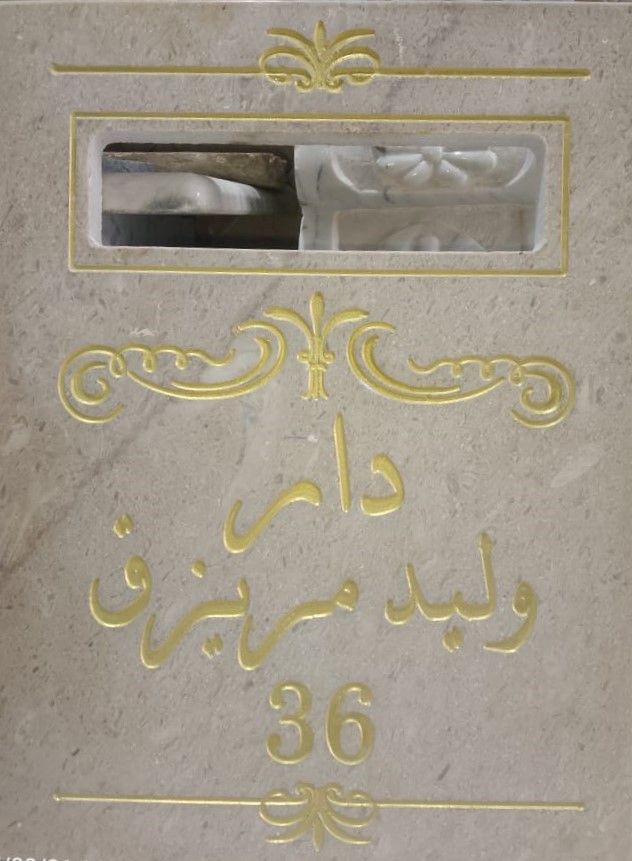 دار
وليد مريزق
36